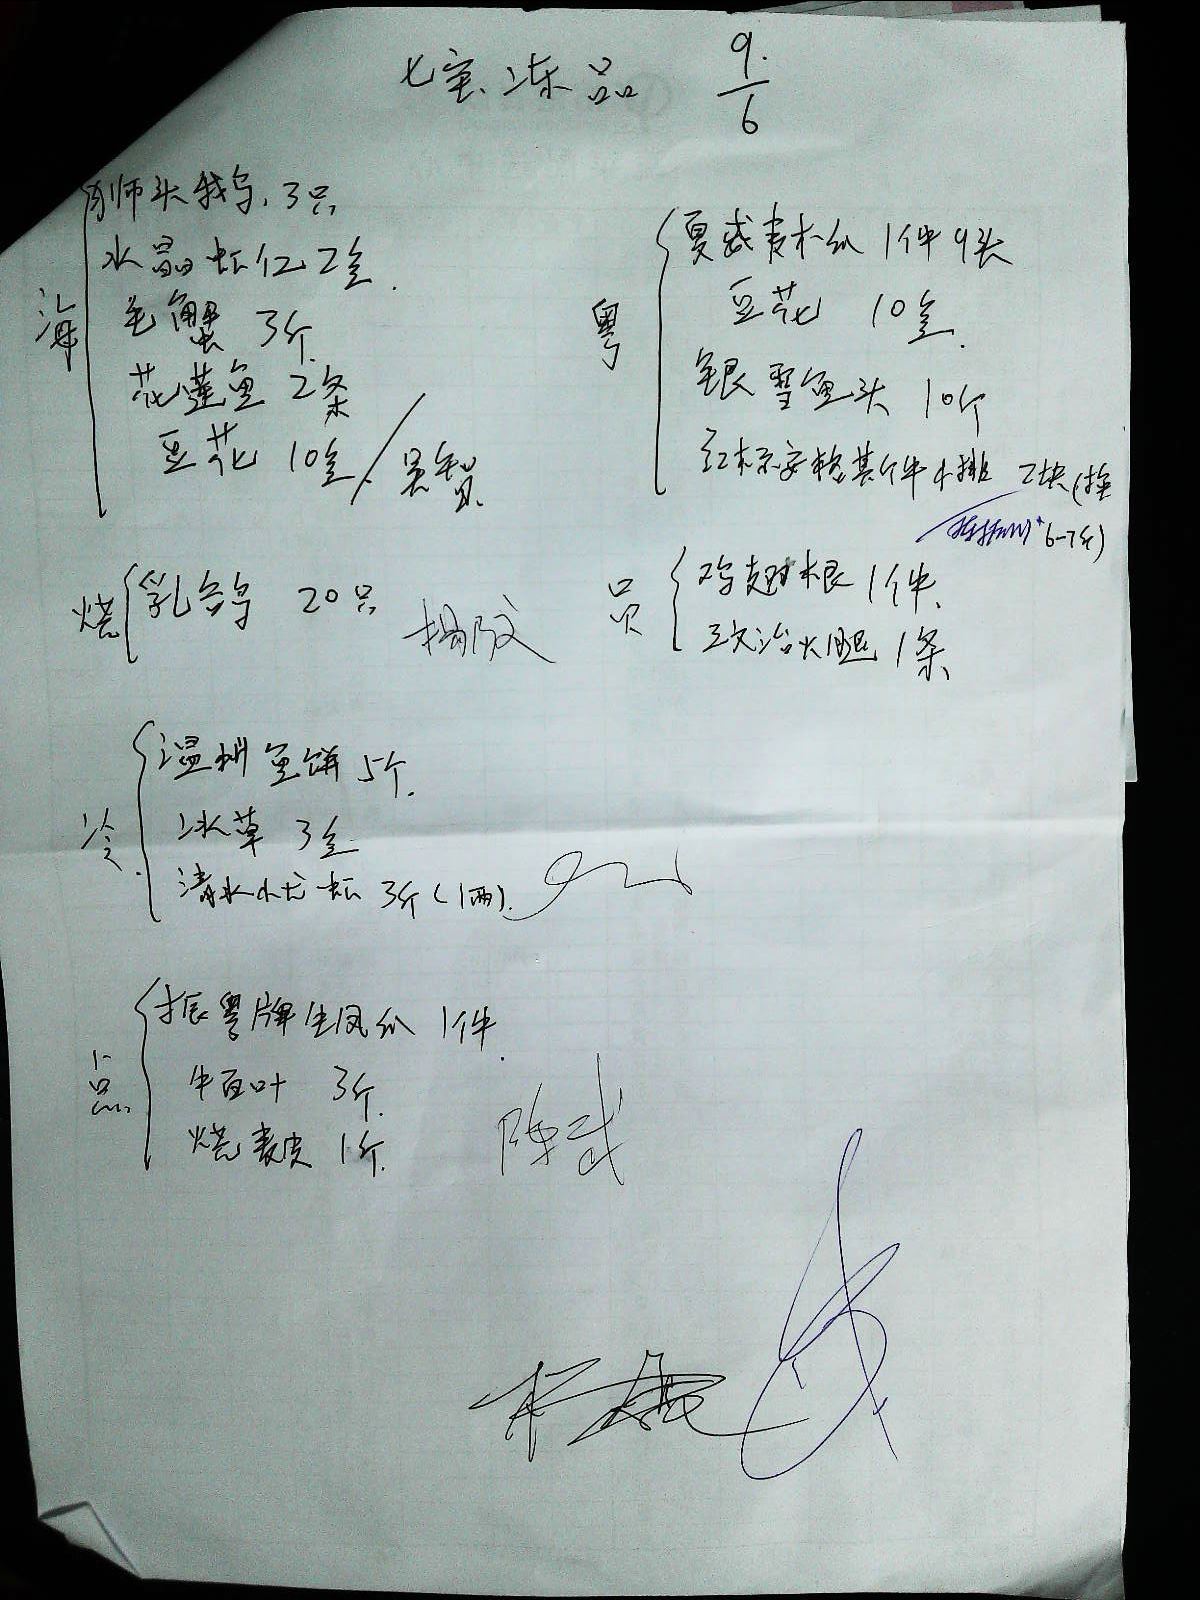 七宝冻品 9/6
海
狮头鹅 3只
水晶虾仁 2盒
毛蟹 3斤
花莲鱼 2条
豆花 10盒
烧
乳鸽 20只
冷
温州鱼饼 5个
冰草 3盒
清水小尤虾 3斤(1两)
点
振粤牌生凤爪 1件
牛百叶 3斤
烧表皮 1斤
陈武
粤
1件9头
豆花 10盒
银雪鱼头 10斤
红标安格其件小排 2块(
6-7斤)
员
鸡翅根 1件
政治火腿 1条